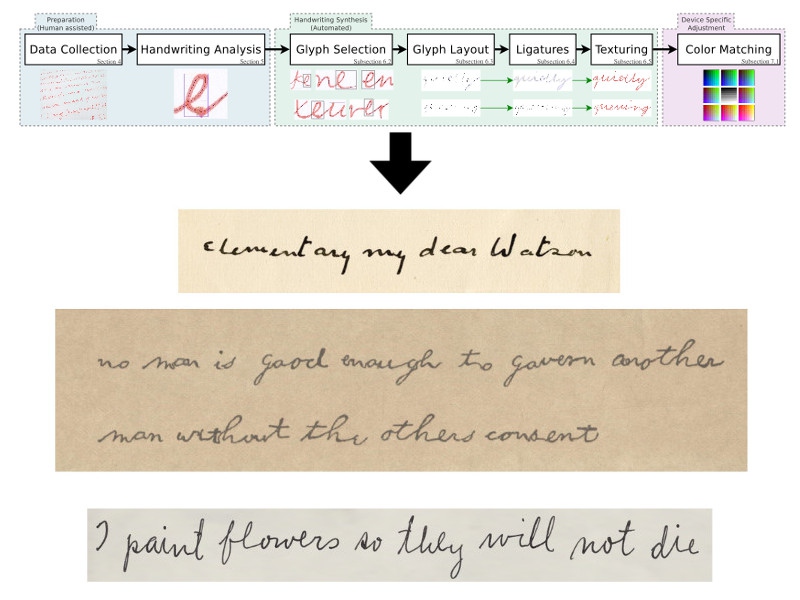 Preparation
(Human assisted)
Handwriting Synthesis
(Automated)
Device Specific
Adjustment
Data Collection
Section 4
Handwriting Analysis
Section 5
Glyph Selection
Subsection 6.2
Glyph Layout
Subsection 6.3
Ligatures
Subsection 6.4
Texturing
Subsection 6.5
Color Matching
Subsection 7.1
quickly
quickly
elementary my dear Watson
no man is good enough to govern another
man without the others consent
I paint flowers so they will not die